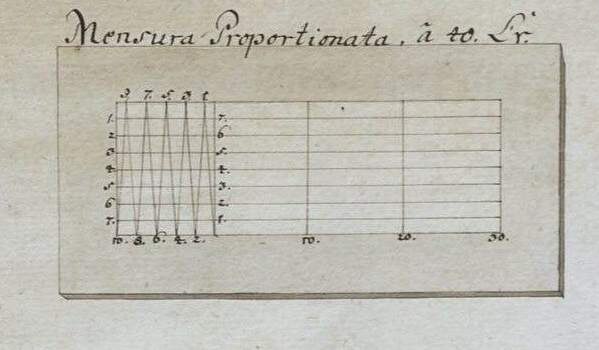 Mensura Proportionata. â 40. Lr.
9. 7. 5. 3. 1.
1. 7.
2. 6
3. 5.
4. 4.
5. 3.
6. 2.
7. 1.
10. 8. 6. 4. 2. 10. 20. 30.